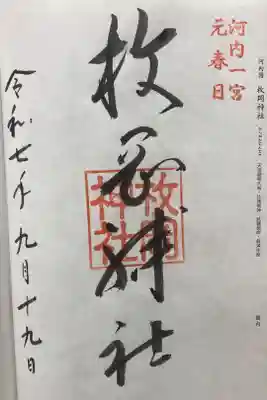 河内一宮
元春日
河内國 枚岡神社
枚岡神社
枚岡神社
令和七年 九月十九日